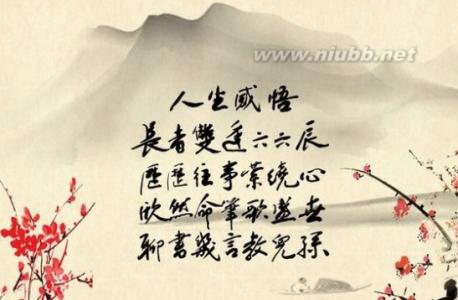 www.niubb.net
人生感悟
長者雙逢六六辰
歷歷往事縈繞心
欣然命筆歌盛世
聊書幾言教兒孫